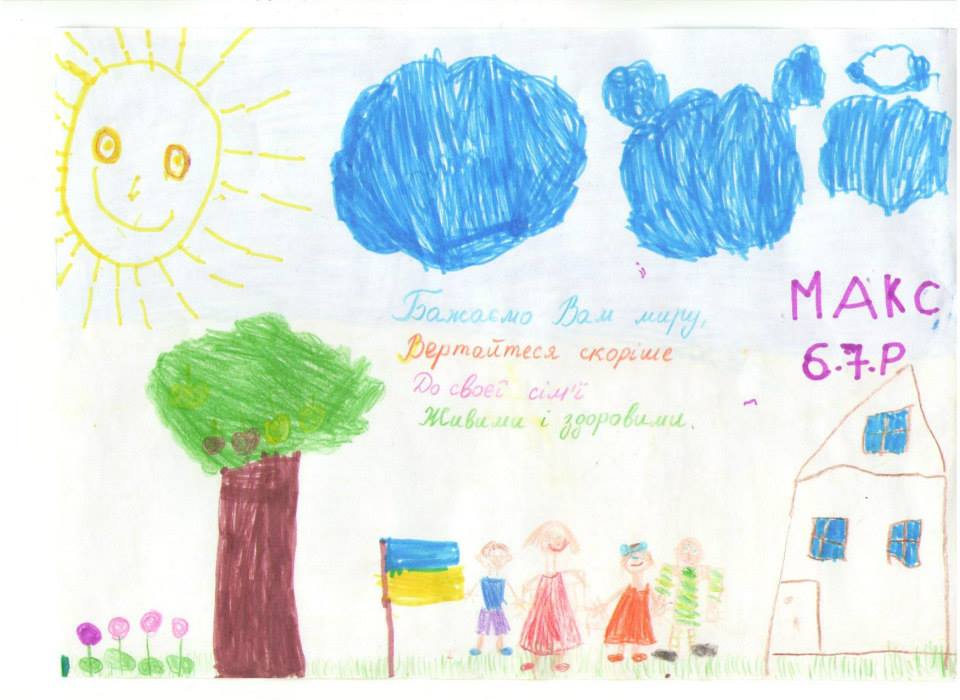 МАКС
6.7.Р
Бажаємо Вам миру,
Вертайтеся скоріше
До своєї сім'ї
Живими і здоровими.